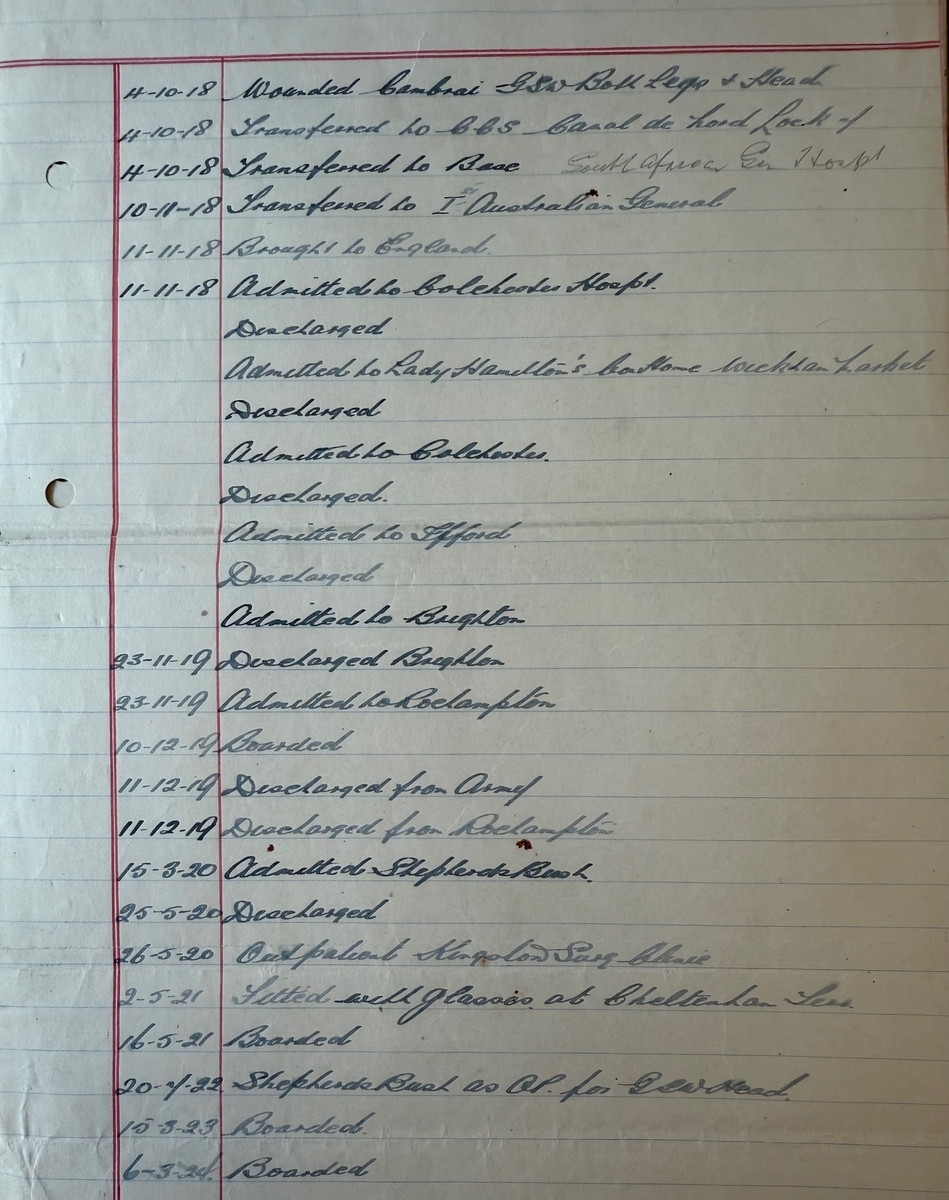 4-10-18 Wounded Cambrai GSW Both Legs & Head
4-10-18 Transferred to CCS Canal de Lock
4-10-18 Transferred to Base South African Gen Hospt
10-11-18 Transferred to Ist Australian General
11-11-18 Brought to England.
11-11-18 Admitted to Colchester Hospt.
Discharged
Admitted to Lady Hamilton's Con Home Wickham Market
Discharged
Admitted to Colchester.
Discharged.
Admitted to Ifford
Discharged
Admitted to Brighton
23-11-19 Discharged Brighton
23-11-19 Admitted to Roehampton
10-12-19 Boarded
11-12-19 Discharged from Army
11-12-19 Discharged from Roehampton
15-3-20 Admitted Shepherds Bush.
25-5-20 Discharged
26-5-20 Outpatient Kingston Surg Clinic
2-5-21 Fitted with glasses. at Cheltenham
16-5-21 Boarded
Shepherds Bush as OP. for GSW Head.
15-3-23 Boarded.
6-3-24. Boarded